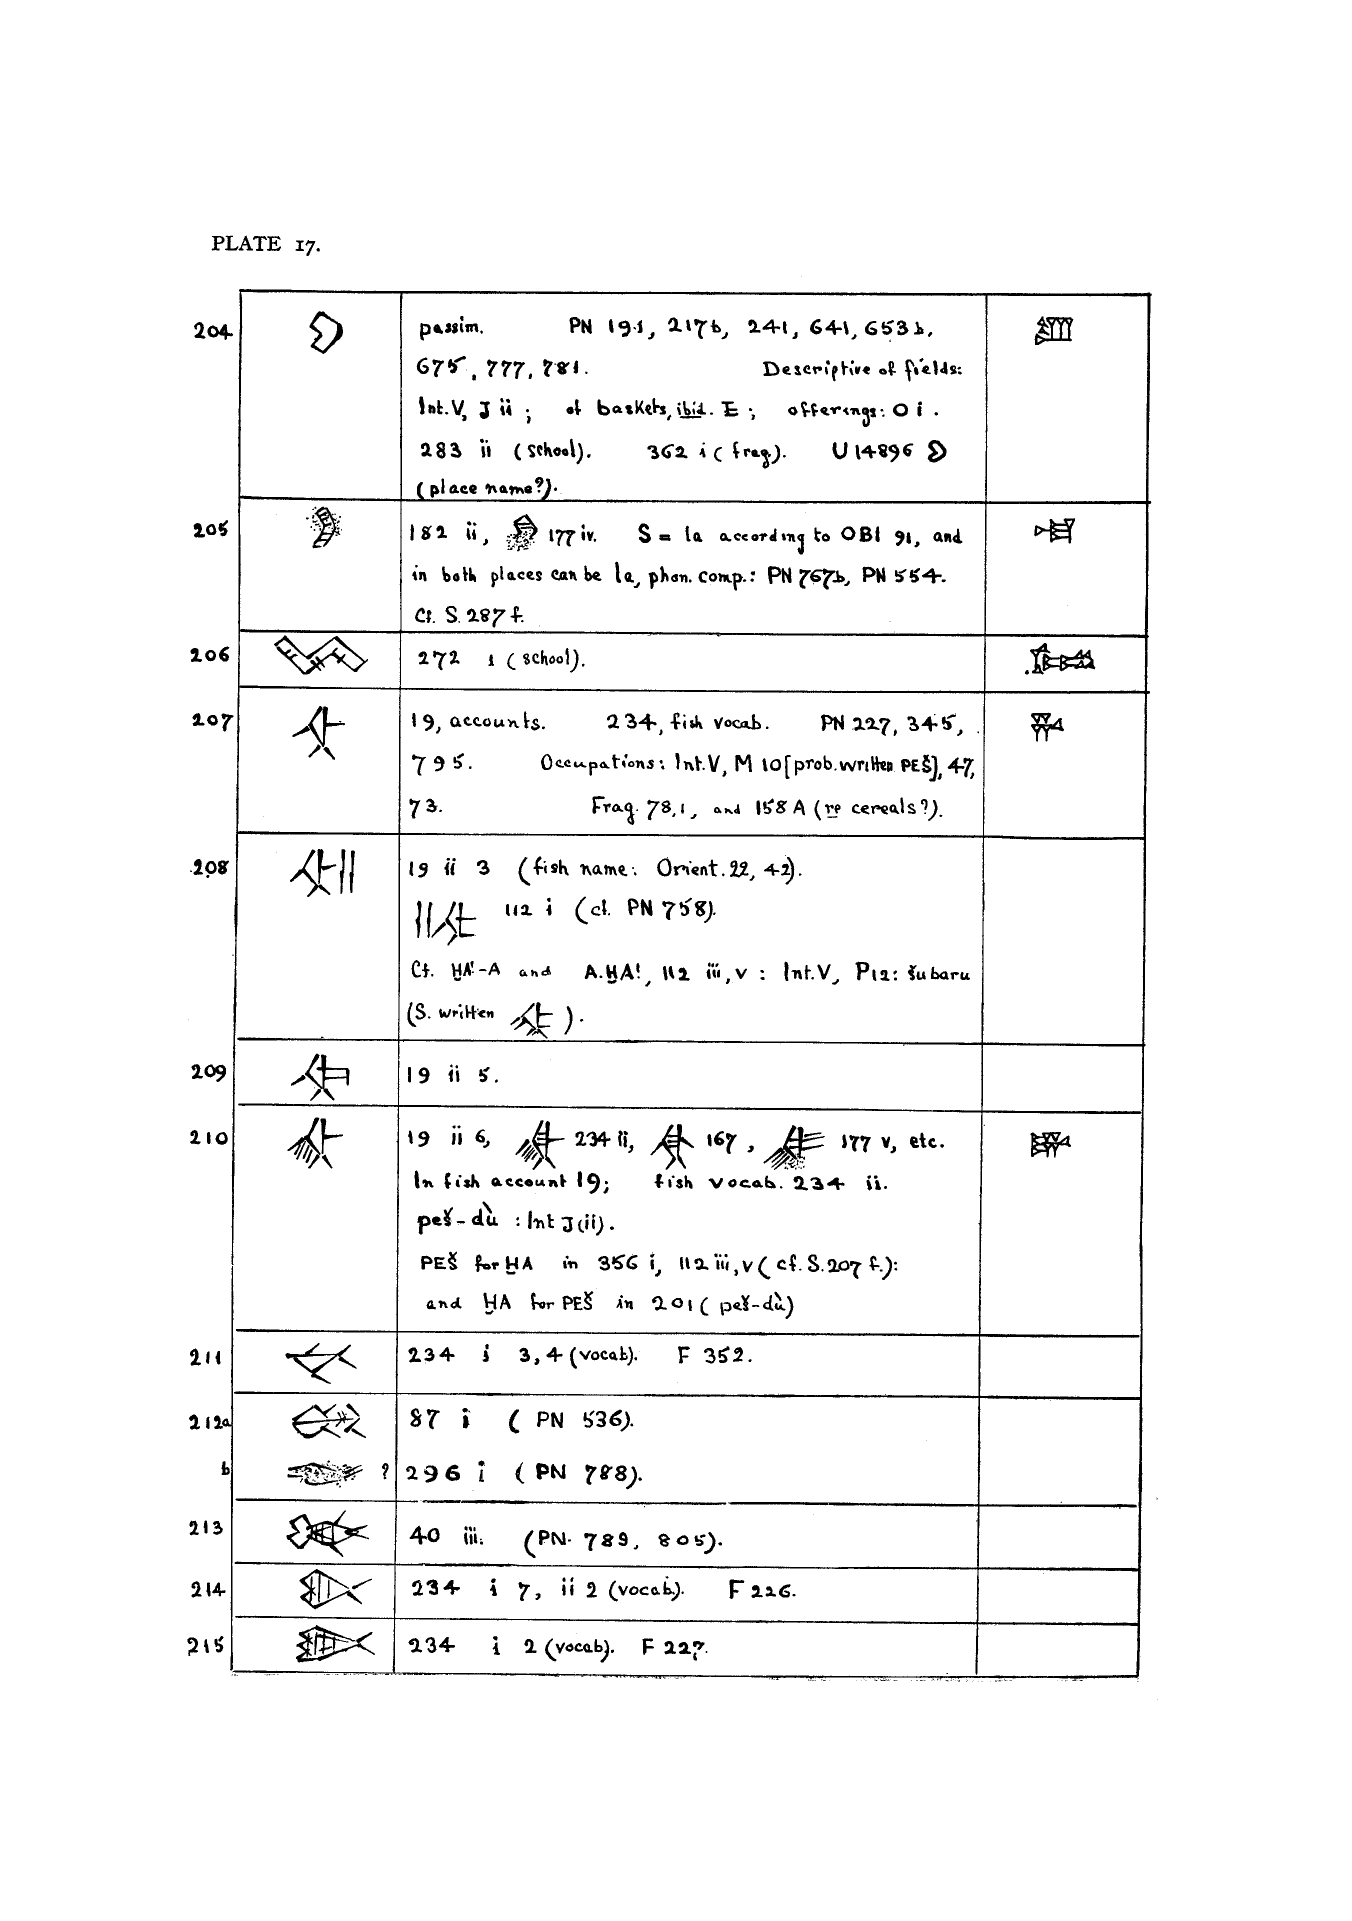 PLATE 17.
204 passim. PN 191, 217b, 241, 641, 653b,
675, 777, 781. Descriptive of fields:
Int.V, J ii ; of baskets, ibid. E ; offerings: O i .
283 ii (school). 362 i (frag). U 14896
(place name?).
205 182 ii, 177 iv. S = la according to OBI 91, and
in both places can be la, phon. comp.: PN 767b, PN 554.
Cf. S. 287 f.
206 272 i (school).
207 19, accounts. 234, fish vocab. PN 227, 345,
795. Occupations: Int.V, M 10 [prob. written PEŠ], 47,
73. Frag. 78,1, and 158 A (re cereals?).
208 19 ii 3 (fish name: Orient. 22, 42).
112 i (cf. PN 758).
Cf. ḪA!-A and A.ḪA!, 112 iii, v : Int.V, P12: šubaru
(S. written ).
209 19 ii 5.
210 19 ii 6, 234 ii, 167 , 177 v, etc.
In fish account 19; fish vocab. 234 ii.
peš-dù : Int J(ii).
PEŠ for ḪA in 356 i, 112 iii, v (cf. S. 207 f.):
and ḪA for PEŠ in 201 (peš-dù)
211 234 i 3, 4 (vocab). F 352.
212a 87 i (PN 536).
b ? 296 i (PN 788).
213 40 iii. (PN. 789, 805).
214 234 i 7, ii 2 (vocab). F 226.
215 234 i 2 (vocab). F 227.